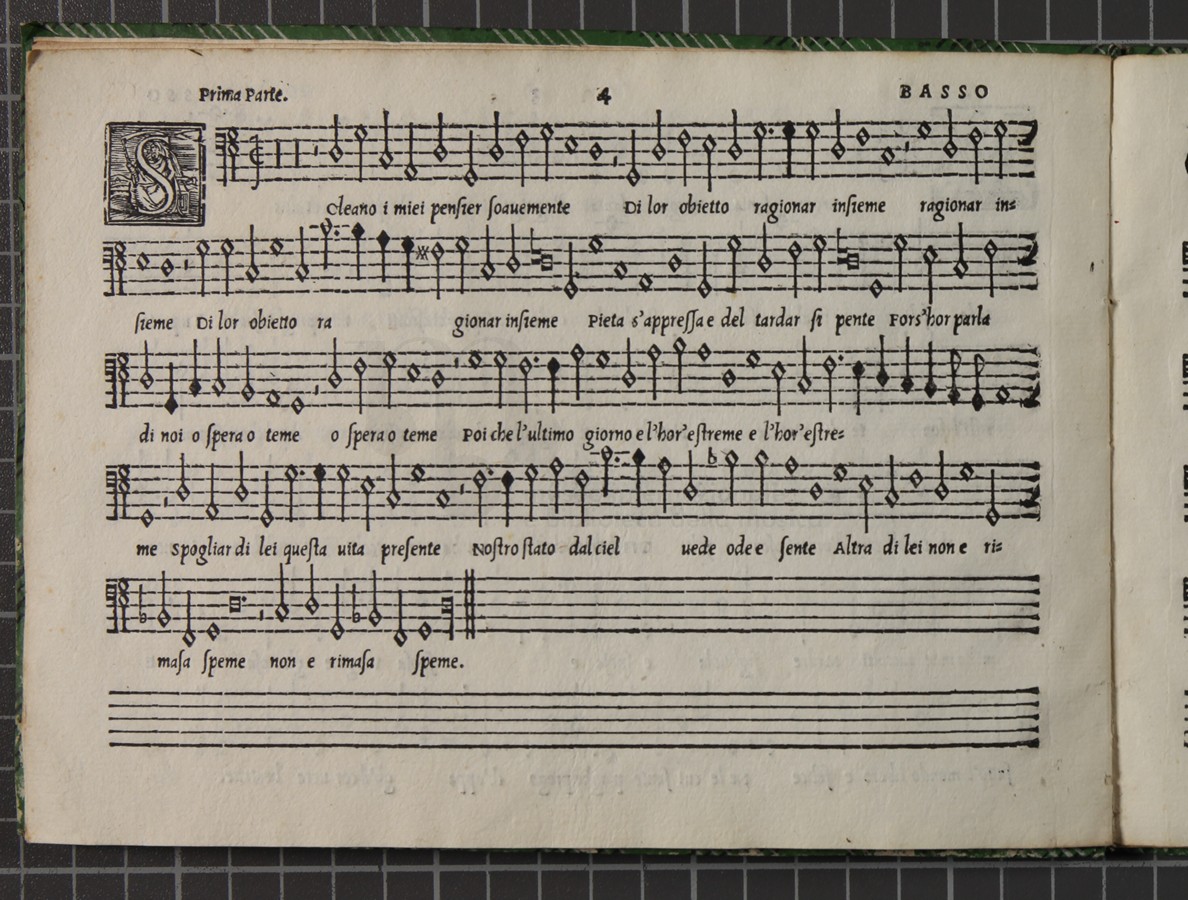 Prima Parte. 4 BASSO
S
Oleano i miei pensier soauemente Di lor obietto ragionar insieme ragionar in=
sieme Di lor obietto ra gionar insieme Pieta s'appressa e del tardar si pente Fors'hor parla
di noi o spera o teme o spera o teme Poi che l'ultimo giorno e l'hor'estreme e l'hor'estre=
me Spogliar di lei questa uita presente Nostro stato dal ciel uede ode e sente Altra di lei non e ri=
masa speme non e rimasa speme.